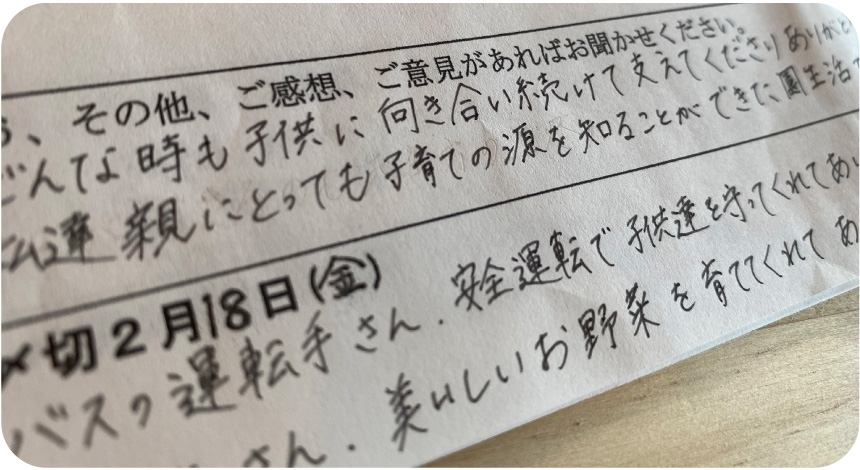 、その他、ご感想、ご意見があればお聞かせください。
どんな時も子供に向き合い続けて支えてくださりありがと
私達親にとっても子育ての源を知ることができた園生活で
〆切2月18日(金)
バスの運転手さん、安全運転で子供達を守ってくれてあり
さん、美味しいお野菜を育ててくれてあ